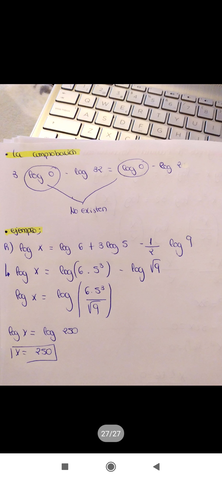 • La comprobación
3 log 0 - log 32 = log 0 - log 2
No existen
• ejemplo:
A) log x = log 6 + 3 log 5 - 1/2 log 9
log x = log (6 · 5³) - log √9
log x = log (6 · 5³ / √9)
log x = log 250
x = 250
27/27